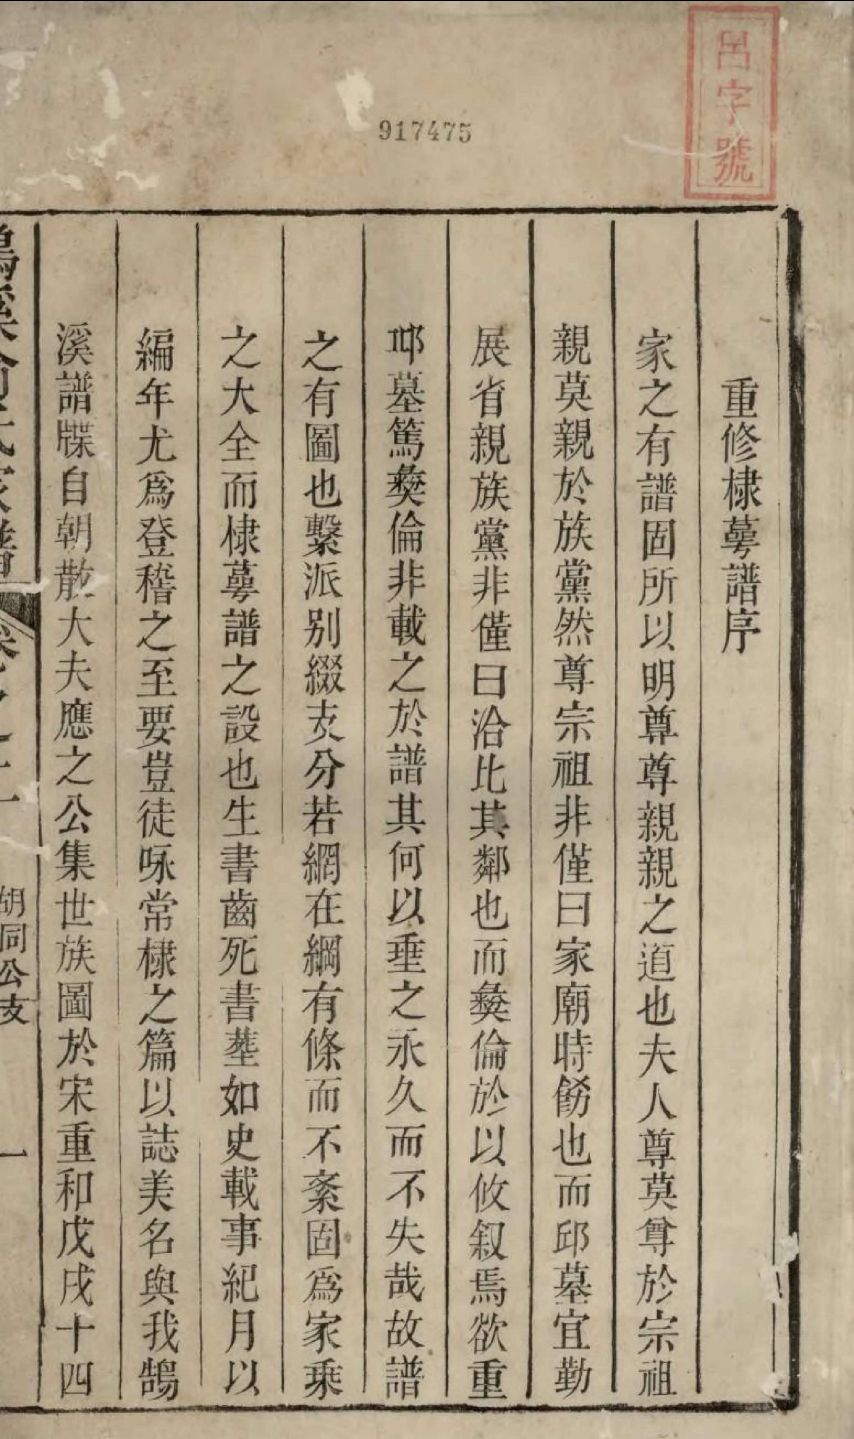 呂字號
917475
重修棣萼譜序
家之有譜固所以明尊尊親親之道也夫人尊莫尊於宗祖
親莫親於族黨然尊宗祖非僅曰家廟時餝也而邱墓宜勤
展省親族黨非僅曰洽比其鄰也而彜倫於以攸叙焉欲重
邱墓篤彜倫非載之於譜其何以垂之永久而不失哉故譜
之有圖也繫派别綴支分若網在綱有條而不紊固爲家乘
之大全而棣萼譜之設也生書齒死書塟如史載事紀月以
編年尤爲登稽之至要豈徒咏常棣之篇以誌美名與我鵠
溪譜牒自朝散大夫應之公集世族圖於宋重和戊戌十四
溪俞氏家譜
胡同公支
一